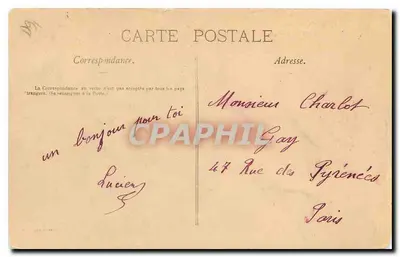 CARTE POSTALE
Correspondance.
Adresse.
La Correspondance au recto n'est pas acceptée par tous les pays
étrangers. (Se renseigner à la Poste.)
un bonjour pour toi
Lucien
Monsieur Charlot
Gay
47 Rue des Pyrénées
Paris
CPARAMA.COM